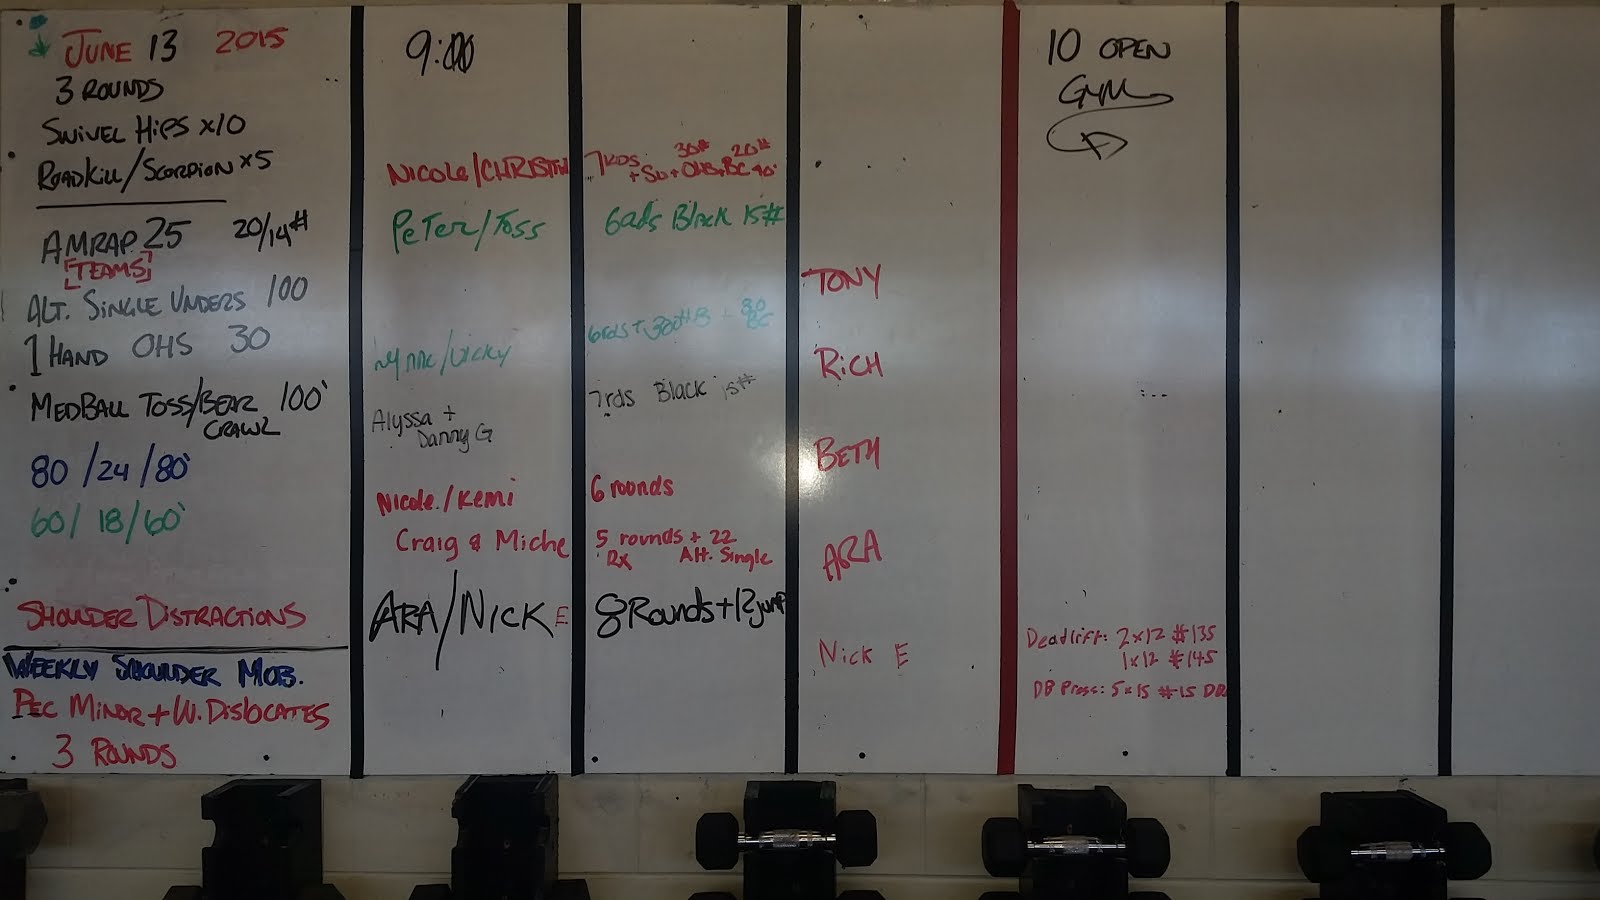 JUNE 13 2015
3 ROUNDS
SWIVEL HIPS x10
ROADKILL/SCORPION x5
AMRAP 25 20/14#
[TEAMS]
ALT. SINGLE UNDERS 100
1 HAND OHS 30
MEDBALL TOSS/BEAR 100'
CRAWL
80/24/80'
60/18/60'
SHOULDER DISTRACTIONS
WEEKLY SHOULDER MOB.
PEC MINOR + W. DISLOCATES
3 ROUNDS
9:00
NICOLE/CHRISTIN
PETER/TOSS
/VICKY
Alyssa +
Danny G
Nicole/Kemi
Craig & Miche
ARA/NICK E
7 RDS 30# 20#
+ SU + OHS + BC 90'
6 rds Black 15#
6rds + 80
BC
7rds Black 15#
6 rounds
5 rounds + 22
Rx Alt. Single
8 Rounds + 12 jump
TONY
RICH
BETH
ARA
Nick E
10 OPEN
GYM
Deadlift: 2x12 #135
1x12 #145
DB Press: 5x15 #15 DB